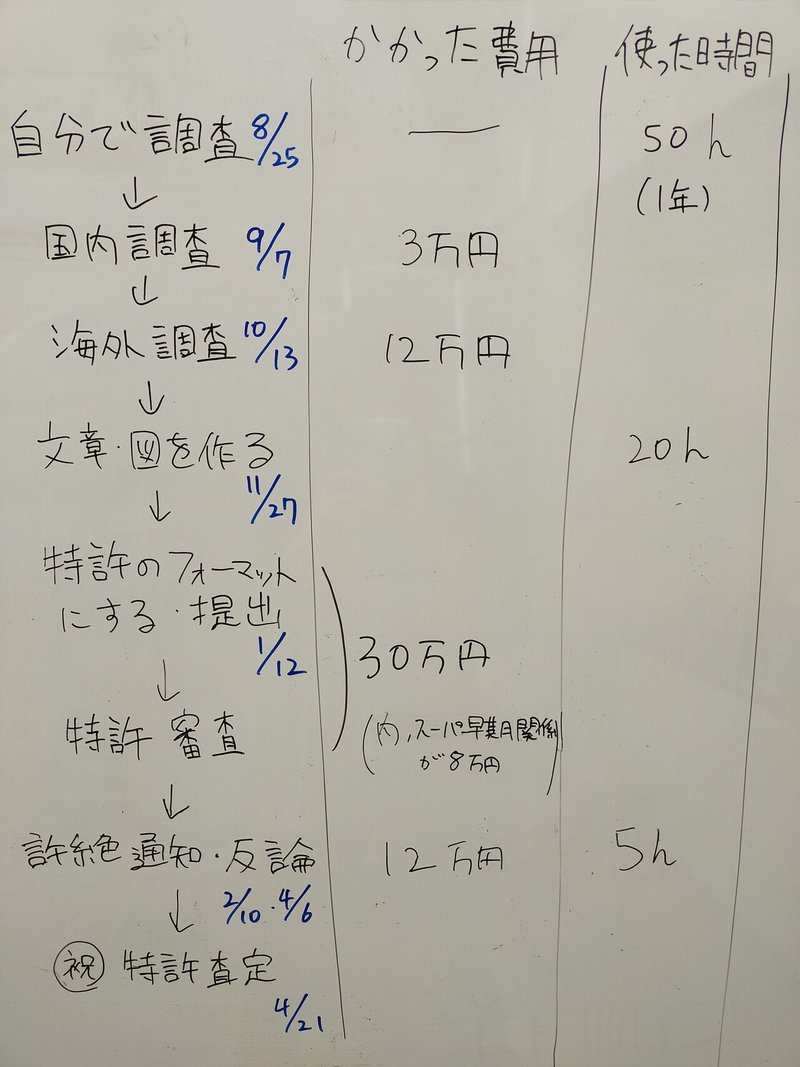 かかった費用 使った時間
自分で調査 8/25 — 50h
(1年)
↓
国内調査 9/7 3万円
↓
海外調査 10/13 12万円
↓
文章・図を作る 20h
11/27
↓
特許のフォーマット
にする・提出
1/12 30万円
↓
特許審査 (内、スーパー早期関係
が8万円)
↓
許絶通知・反論 12万円 5h
2/10・4/6
↓
㊗ 特許査定
4/21